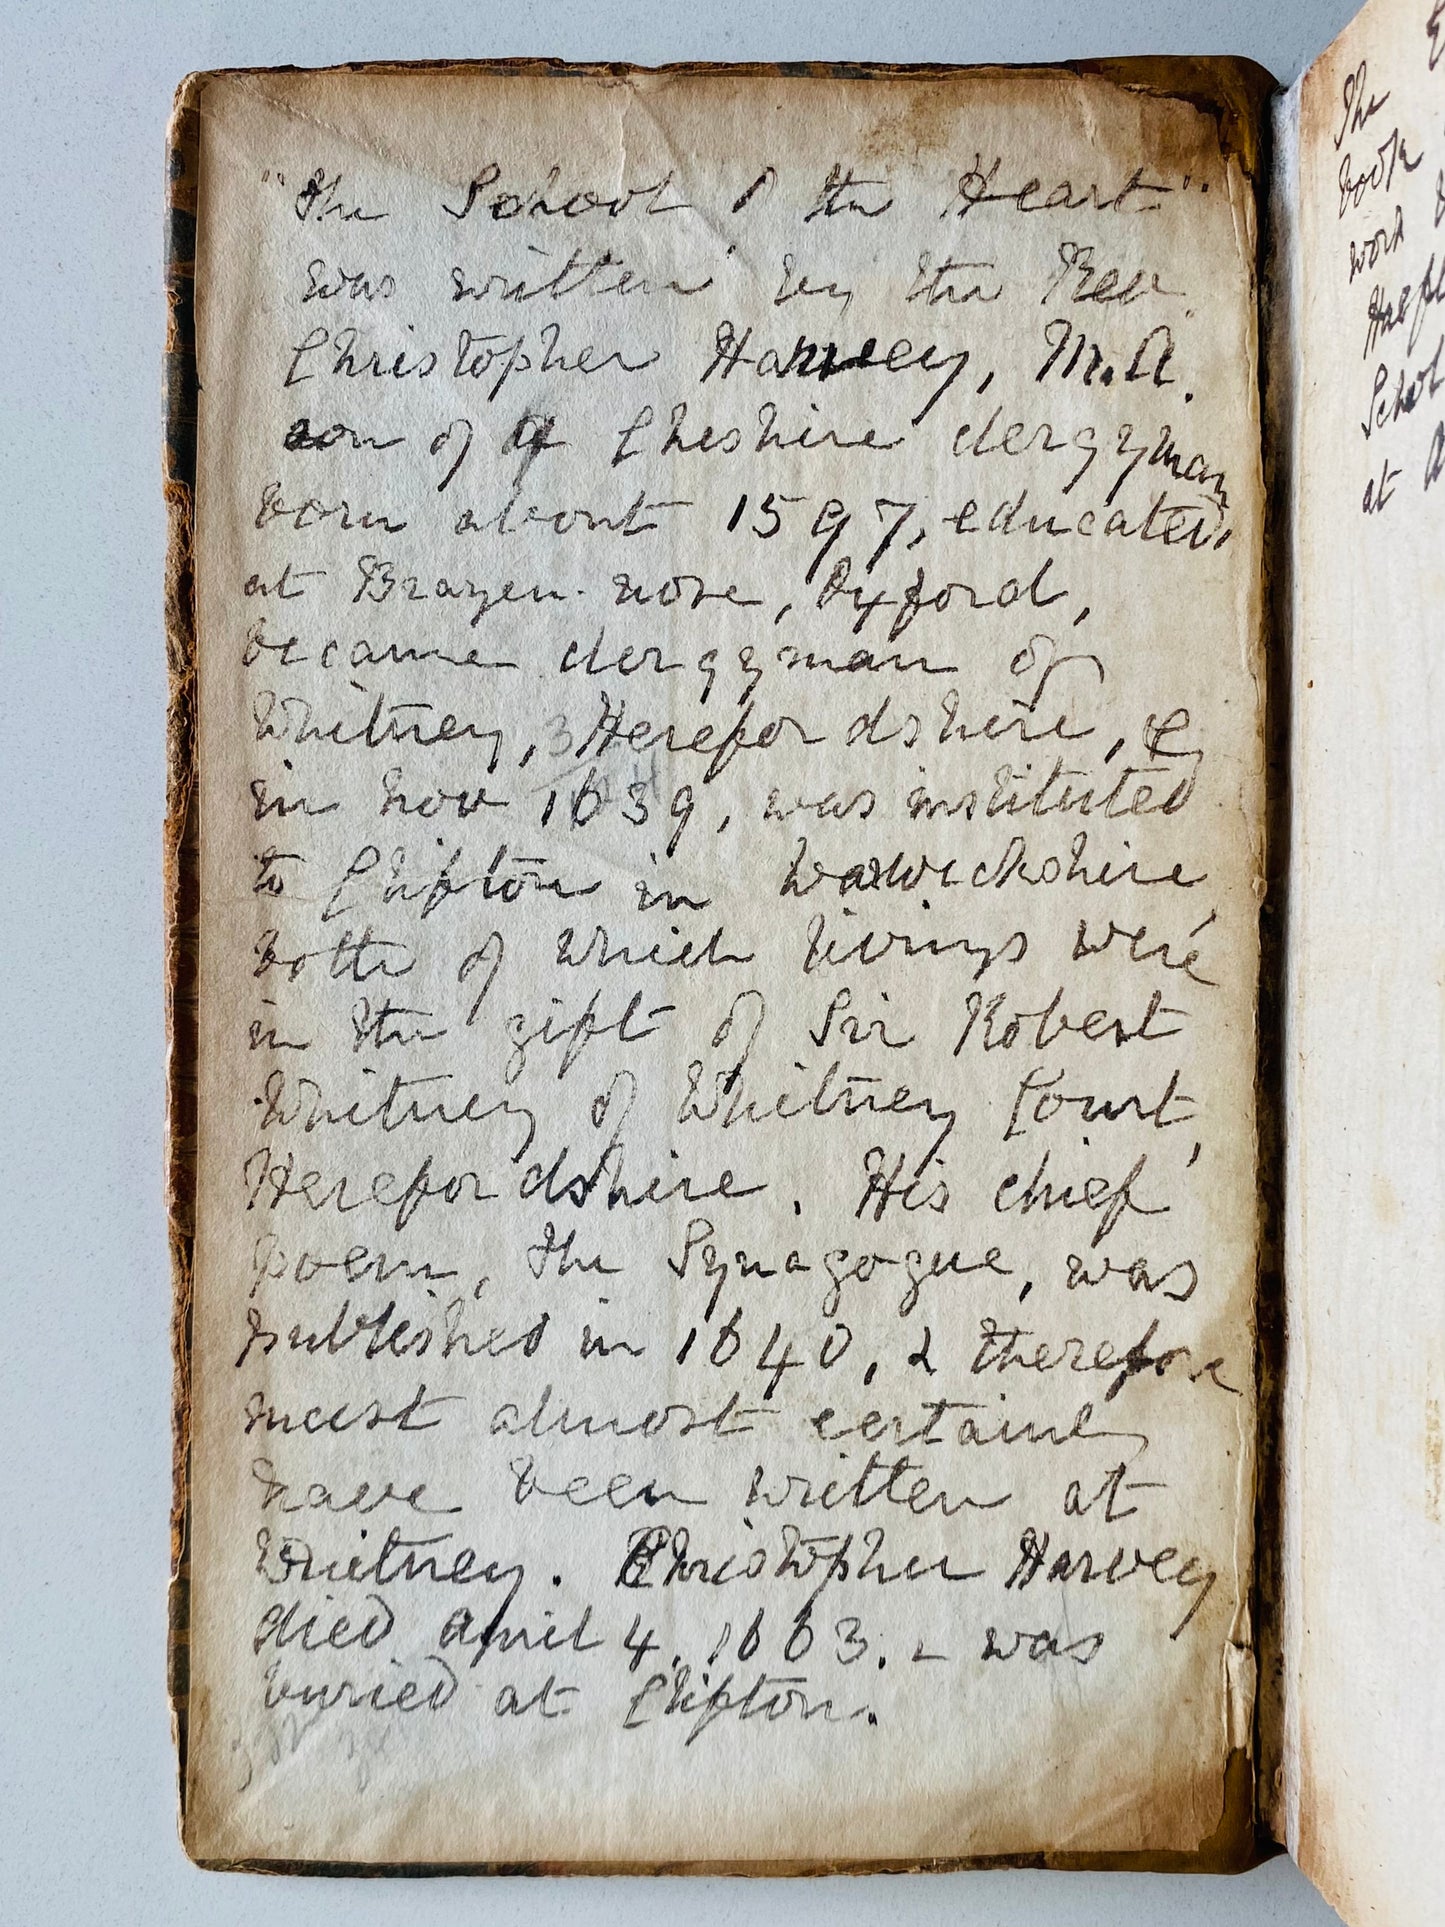 "The School of the Heart".
was written by the Rev.
Christopher Harvey, M.A.
son of a Cheshire clergyman
born about 1597, educated
at Brazen-nose, Oxford,
became clergyman of
Whitney, Herefordshire, &
in Nov 1639, was instituted
to Clifton in Warwickshire,
both of which livings were
in the gift of Sir Robert
Whitney of Whitney Court,
Herefordshire. His chief
poem, the Synagogue, was
published in 1640, & therefore
must almost certainly
have been written at
Whitney. Christopher Harvey
died April 4. 1663. & was
buried at Clifton.
The
book
work
School
at